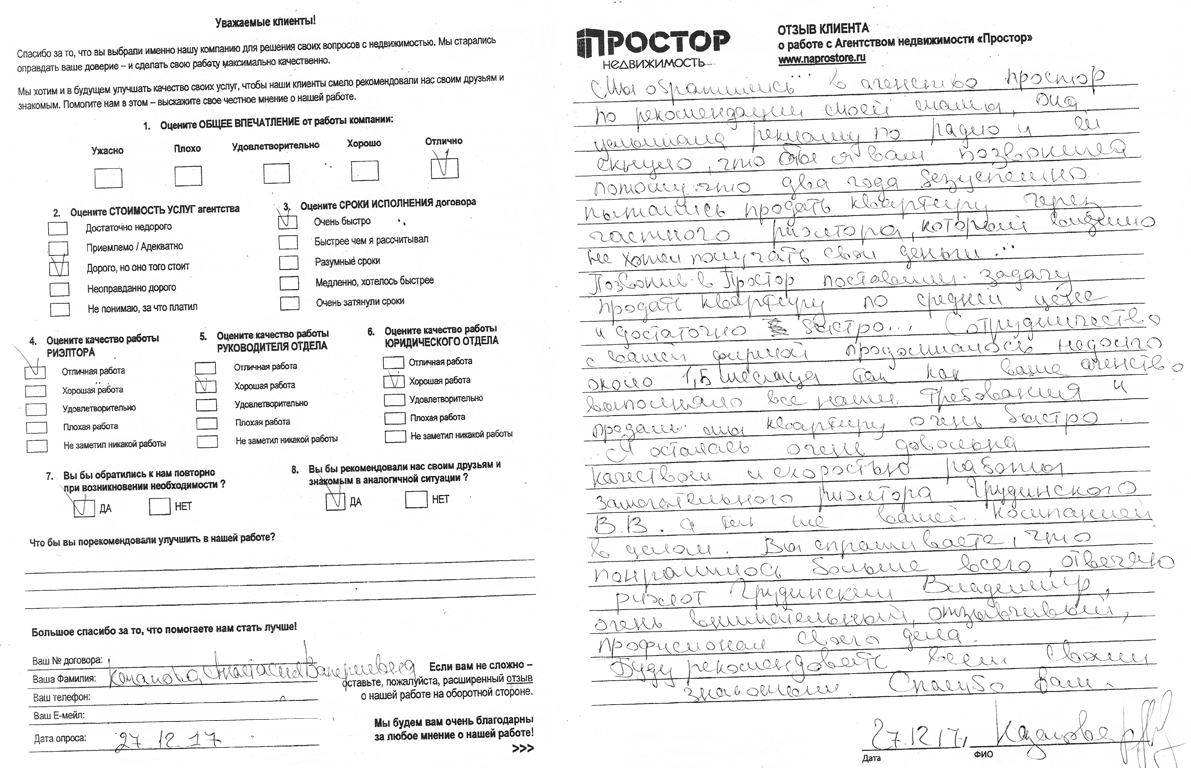 Уважаемые клиенты!
Спасибо за то, что вы выбрали именно нашу компанию для решения своих вопросов с недвижимостью. Мы старались
оправдать ваше доверие – и сделать свою работу максимально качественно.
Мы хотим и в будущем улучшать качество своих услуг, чтобы наши клиенты смело рекомендовали нас своим друзьям и
знакомым. Помогите нам в этом – выскажите свое честное мнение о нашей работе.
1. Оцените ОБЩЕЕ ВПЕЧАТЛЕНИЕ от работы компании:
Ужасно Плохо Удовлетворительно Хорошо Отлично
2. Оцените СТОИМОСТЬ УСЛУГ агентства
Достаточно недорого
Приемлемо / Адекватно
Дорого, но оно того стоит
Неоправданно дорого
Не понимаю, за что платил
3. Оцените СРОКИ ИСПОЛНЕНИЯ договора
Очень быстро
Быстрее чем я рассчитывал
Разумные сроки
Медленно, хотелось быстрее
Очень затянули сроки
4. Оцените качество работы
РИЭЛТОРА
Отличная работа
Хорошая работа
Удовлетворительно
Плохая работа
Не заметил никакой работы
5. Оцените качество работы
РУКОВОДИТЕЛЯ ОТДЕЛА
Отличная работа
Хорошая работа
Удовлетворительно
Плохая работа
Не заметил никакой работы
6. Оцените качество работы
ЮРИДИЧЕСКОГО ОТДЕЛА
Отличная работа
Хорошая работа
Удовлетворительно
Плохая работа
Не заметил никакой работы
7. Вы бы обратились к нам повторно
при возникновении необходимости ?
ДА НЕТ
8. Вы бы рекомендовали нас своим друзьям и
знакомым в аналогичной ситуации ?
ДА НЕТ
Что бы вы порекомендовали улучшить в нашей работе?
Большое спасибо за то, что помогаете нам стать лучше!
Ваш № договора:
Ваша Фамилия: Качалова Анастасия Валерьевна
Ваш телефон:
Ваш Е-мейл:
Дата опроса: 27 12 17
Если вам не сложно –
оставьте, пожалуйста, расширенный отзыв
о нашей работе на оборотной стороне.
Мы будем вам очень благодарны
за любое мнение о нашей работе!
>>>
ПРОСТОР
НЕДВИЖИМОСТЬ
ОТЗЫВ КЛИЕНТА
о работе с Агентством недвижимости «Простор»
www.naprostore.ru
Мы обратились в агенство простор
по рекомендации моей мамы, она
услышала рекламу по радио и
что я вам позвонила
потому что два года безуспешно
пытались продать квартиру через
частного риэлтора, который видимо
не хотел получать свои деньги..
Позвонив в Простор поставили задачу
продать квартиру по средней цене
и достаточно быстро... Сотрудничество
с вашей фирмой продолжалось недолго
около 1,5 месяца так как ваше агенство
выполняло все наши требования и
продали мы квартиру очень быстро
Я осталась очень довольна
качеством и скоростью работы
замечательного риэлтора Грудинского
В.В. а так же вашей компанией
в целом. Вы спрашиваете, что
понравилось больше всего, отвечаю
риэлт Грудинский Владимир,
очень внимательный, отзывчивый,
професионал своего дела.
Буду рекомендовать всем своим
знакомым. Спасибо вам.
27.12.17г
Дата ФИО